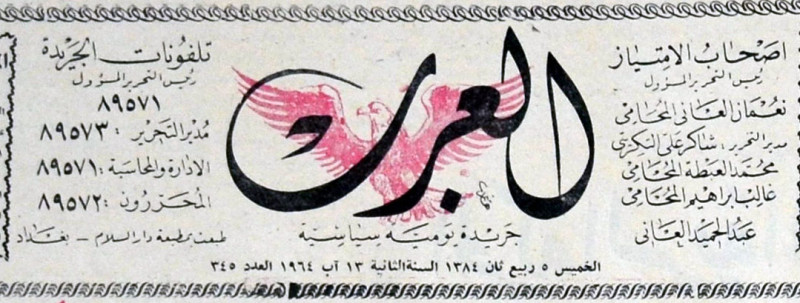 اصحاب الامتياز
رئيس التحرير المسؤول
نعمان العاني المحامي
مدير التحرير : شاكر علي التكريتي
محمد العبطة المحامي
غالب ابراهيم المحامي
عبد الحميد العاني
العرب
جريدة يومية سياسية
تلفونات الجريدة
رئيس التحرير المسؤول
٨٩٥٧١
مدير التحرير : ٨٩٥٧٣
الادارة والمحاسبة : ٨٩٥٧١
المحررون : ٨٩٥٧٢
طبعت بمطبعة دار السلام - بغداد
الخميس ٥ ربيع ثان ١٣٨٤ السنة الثانية ١٣ آب ١٩٦٤ العدد ٣٤٥